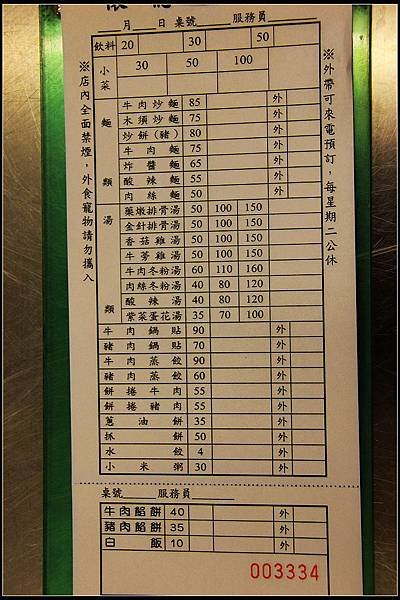 月 日 桌號 服務員
飲料 20 30 50
小菜 30 50 100
麵類
牛肉炒麵 85 外
木須炒麵 75 外
炒餅(豬) 80 外
牛肉麵 75 外
炸醬麵 65 外
酸辣麵 55 外
肉絲麵 50 外
湯類
藥燉排骨湯 50 100 150
金針排骨湯 50 100 150
香菇雞湯 50 100 150
牛蒡雞湯 50 100 150
牛肉冬粉湯 60 110 160
肉絲冬粉湯 40 80 120
酸辣湯 40 80 120
紫菜蛋花湯 35 70 100
牛肉鍋貼 90 外
豬肉鍋貼 70 外
牛肉蒸餃 90 外
豬肉蒸餃 60 外
餅捲牛肉 55 外
餅捲豬肉 55 外
蔥油餅 35 外
抓餅 50 外
水餃 4 外
小米粥 30 外
桌號 服務員
牛肉餡餅 40 外
豬肉餡餅 35 外
白飯 10 外
003334
※店內全面禁煙,外食寵物請勿攜入
※外帶可來電預訂,每星期二公休